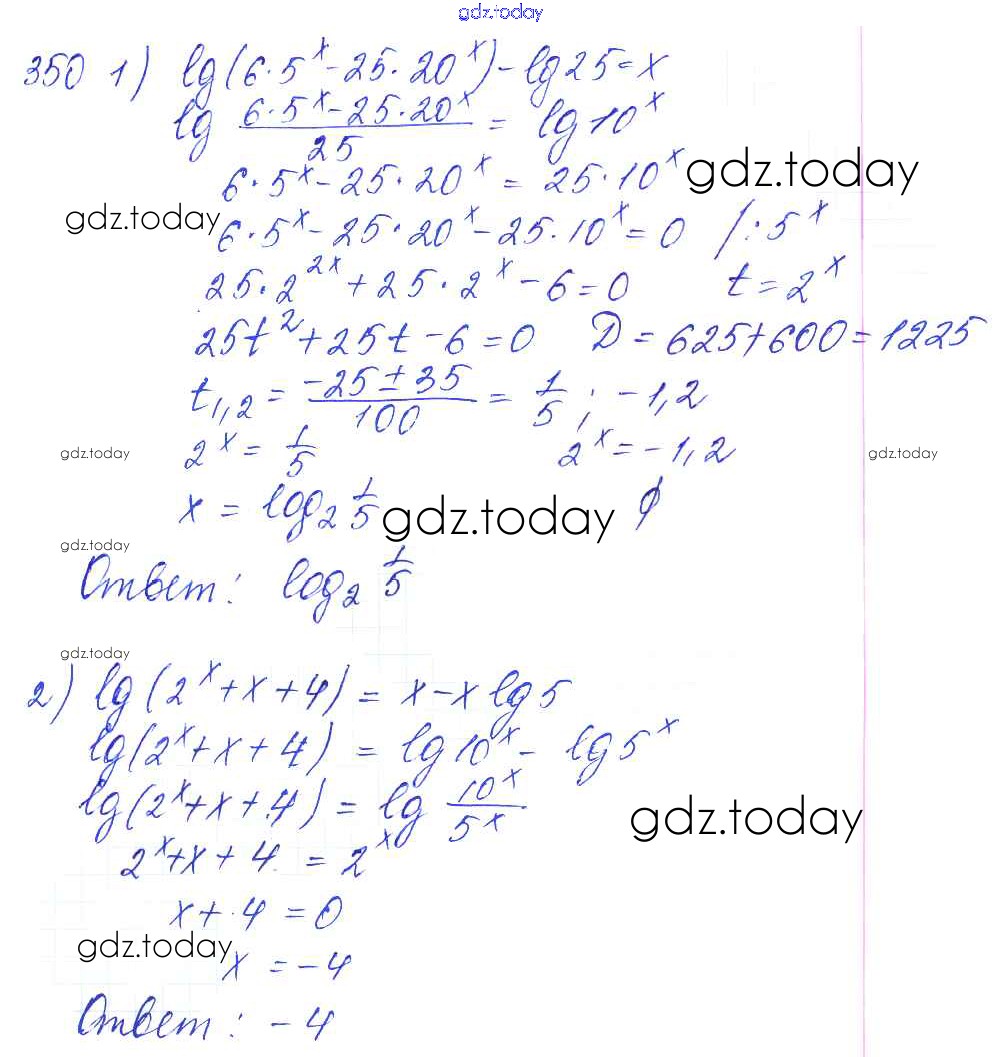 gdz.today
350 1) lg(6·5^x - 25·20^x) - lg25 = x
lg (6·5^x - 25·20^x)/25 = lg10^x
6·5^x - 25·20^x = 25·10^x gdz.today
gdz.today 6·5^x - 25·20^x - 25·10^x = 0 /:5^x
25·2^{2x} + 25·2^x - 6 = 0 t = 2^x
25t^2 + 25t - 6 = 0 D = 625 + 600 = 1225
t_{1,2} = (-25 ± 35)/100 = 1/5 ; -1,2
gdz.today 2^x = 1/5 2^x = -1,2 gdz.today
x = log_2 1/5 gdz.today ∅
gdz.today
Ответ: log_2 1/5
gdz.today
2) lg(2^x + x + 4) = x - x lg5
lg(2^x + x + 4) = lg10^x - lg5^x
lg(2^x + x + 4) = lg 10^x/5^x gdz.today
2^x + x + 4 = 2^x
x + 4 = 0
gdz.today x = -4
Ответ: -4